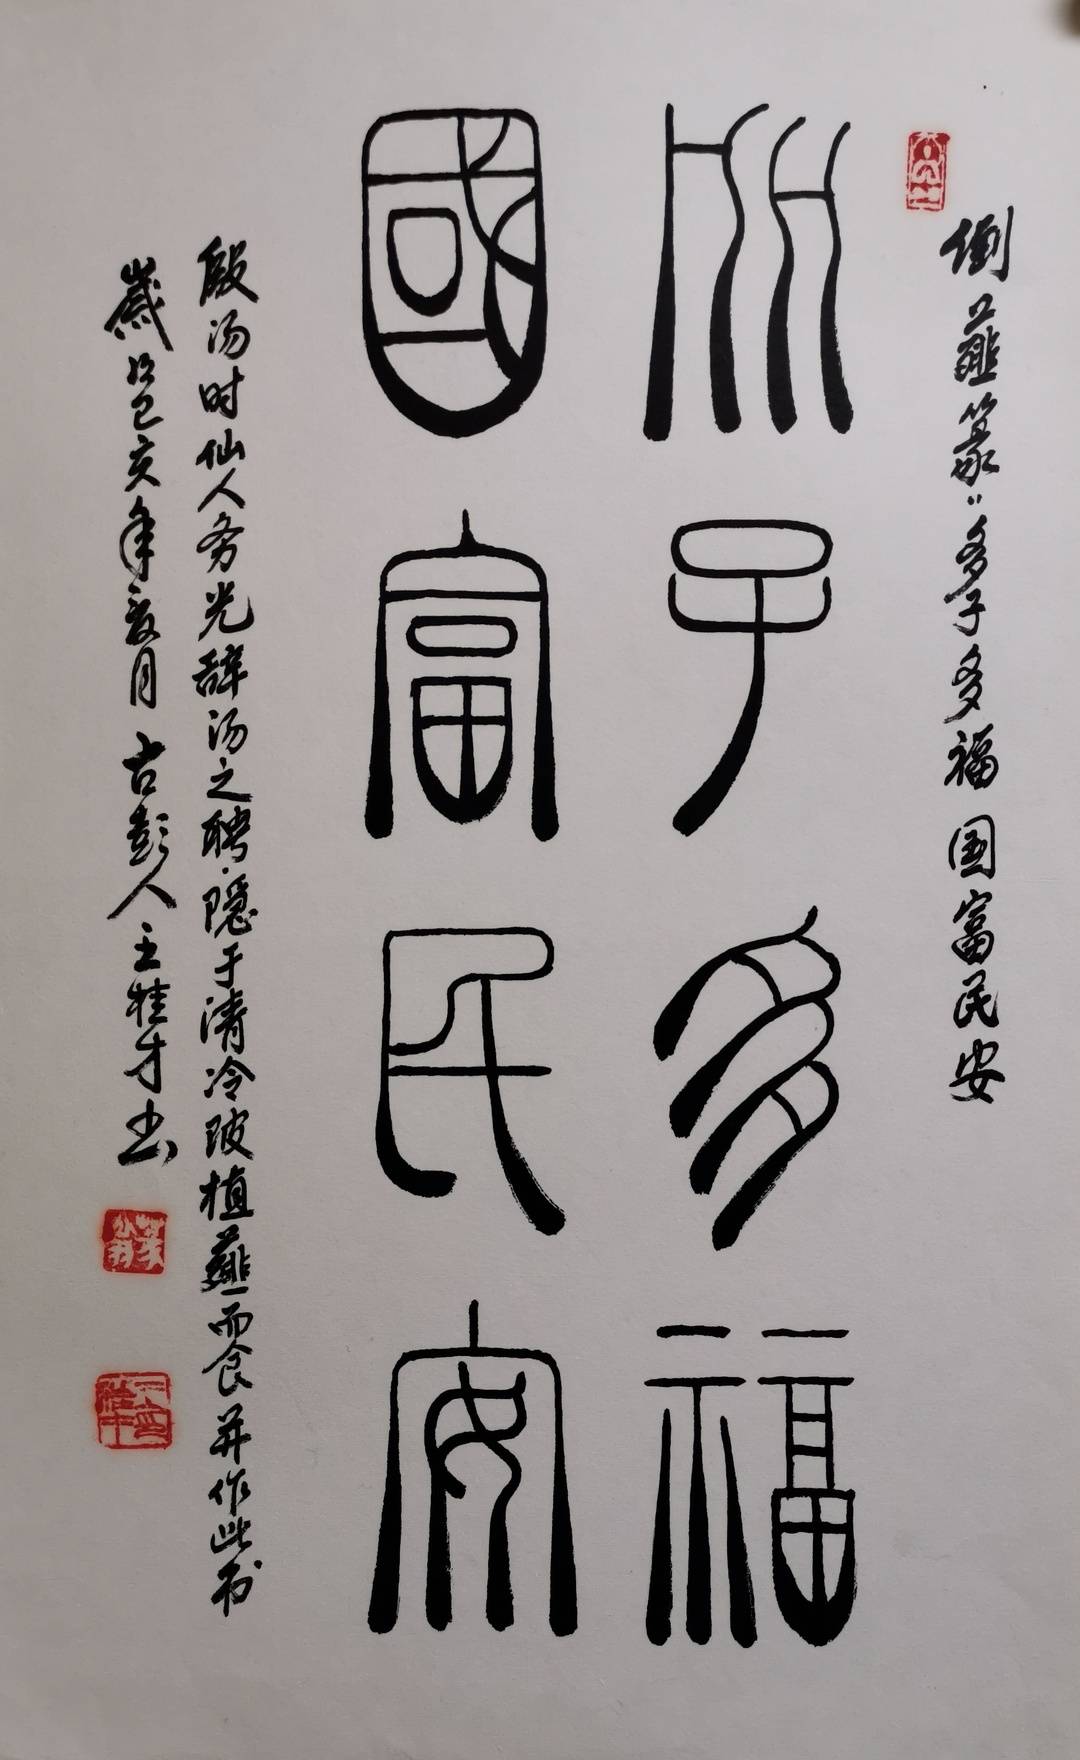 倒薤篆"多子多福 国富民安
多子多福
國富民安
殷汤时仙人务光辞汤之聘.隐于清冷陂植薤而食并作此书
歲次己亥年夏月 古彭人王桂才书